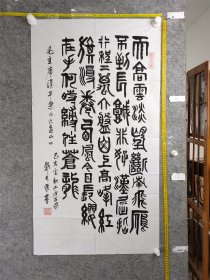 天高雲淡望斷南飛雁
不到長城非好漢屈指
行程二萬六盤山上高峰紅
旗漫卷西風今日長纓
在手何時縛住蒼龍
毛主席清平樂六盤山